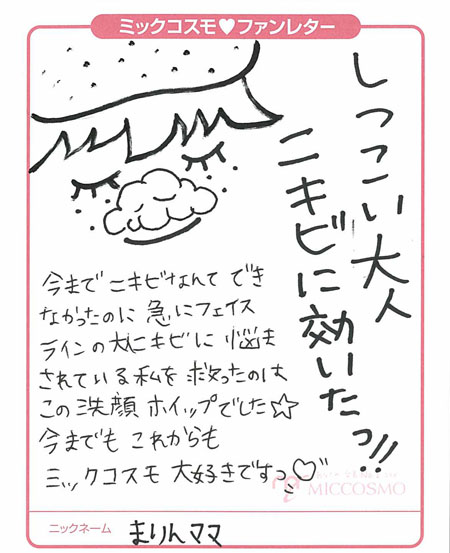 ミックコスモ♥ファンレター
しつこい大人
ニキビに効いたっ!!
今まで ニキビなんて でき
なかったのに 急にフェイス
ラインの大人ニキビに 悩ま
されている私を 救ったのは
この 洗顔 ホイップでした☆
今までも これからも
ミックコスモ 大好きですっ♡
MICCOSMO
ニックネーム まりんママ